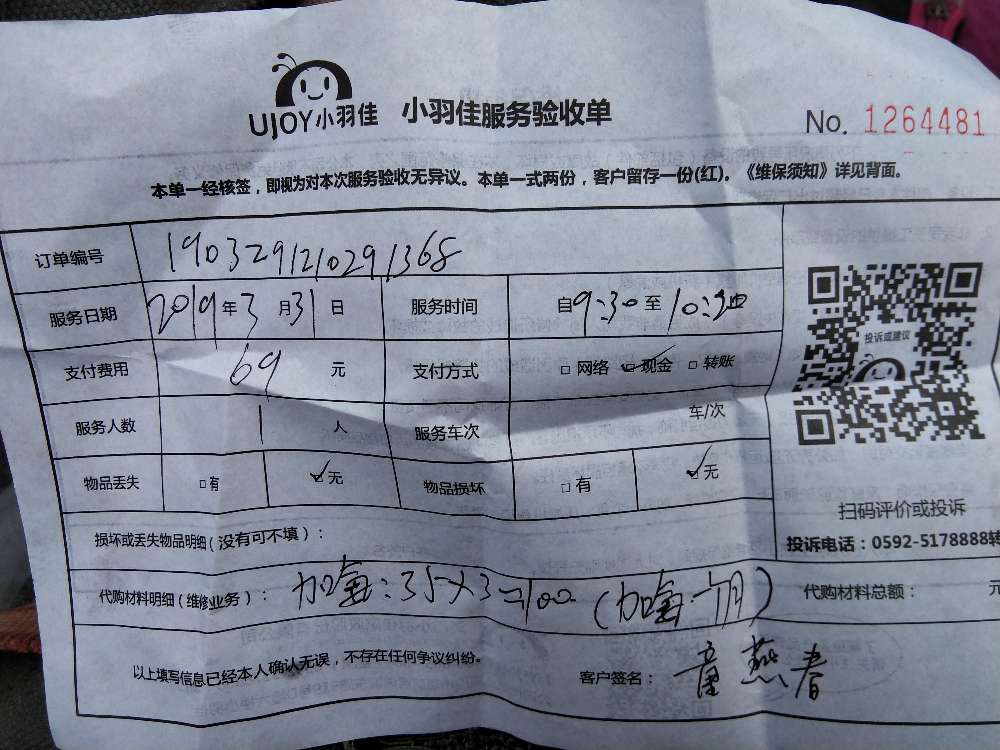 UJOY小羽佳 小羽佳服务验收单
No. 1264481
本单一经核签，即视为对本次服务验收无异议。本单一式两份，客户留存一份(红)。《维保须知》详见背面。
订单编号 1903291210291368
服务日期 2019年3月31日 服务时间 自9:30至10:30
支付费用 69 元 支付方式 □网络 ☑现金 □转账
投诉或建议
服务人数 1 人 服务车次 车/次
物品丢失 □有 ☑无 物品损坏 □有 ☑无
扫码评价或投诉
损坏或丢失物品明细(没有可不填)：
投诉电话：0592-5178888转
代购材料明细(维修业务)： 35×3=100
代购材料总额： 元
以上填写信息已经本人确认无误，不存在任何争议纠纷。
客户签名： 童燕春